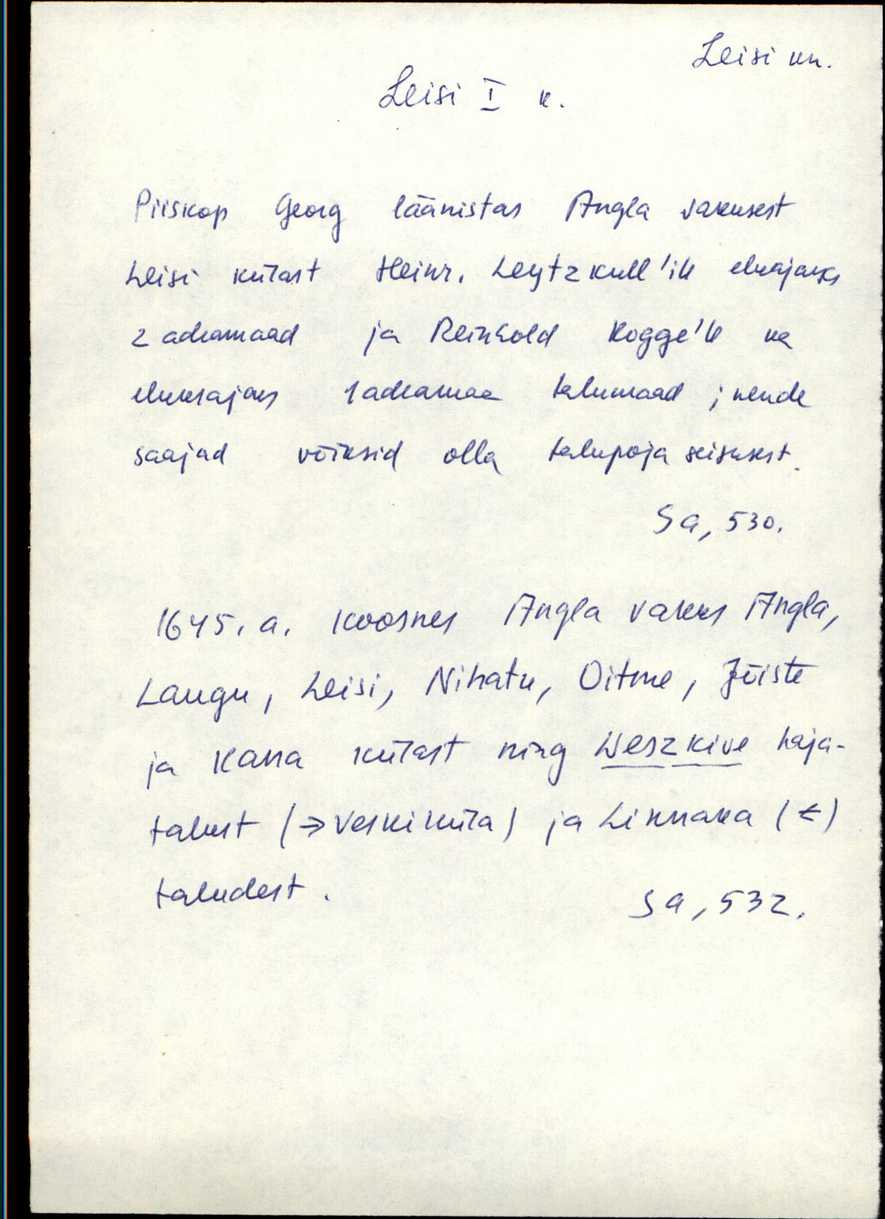 Leisi kn.
Leisi I k.
Piiskop Georg läänistas Angla vakusest
Leisi külast Heinr. Leytzkull'ile eluajaks
2 adramaad ja Reinhold Kogge'le ka
eluksajaks 1 adramaa talumaad; nende
saajad võiksid olla talupoja seisusest.
Sa, 530.
1645. a. koosnes Angla vakus Angla,
Laugu, Leisi, Nihatu, Oitme, Jõiste
ja Karra külast ning Weszkive haja-
talust (→ Veskiküla) ja Linnaka (←)
taludest.
Sa, 532.